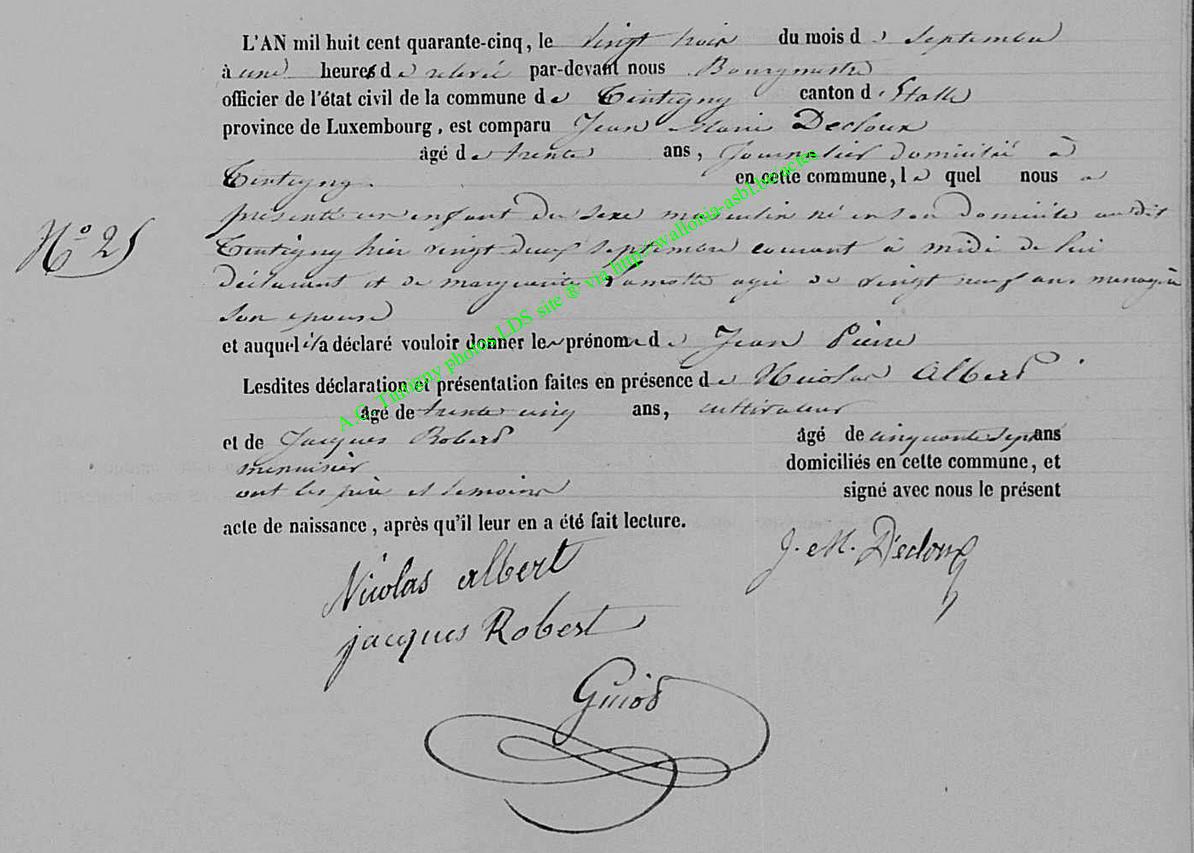 L'AN mil huit cent quarante-cinq, le vingt trois du mois de Septembre
à une heure de relevée par-devant nous Bourgmestre
officier de l'état civil de la commune de Tintigny canton d'Etalle
province de Luxembourg, est comparu Jean Marie Decloux
âgé de trente ans, Journalier domicilié à
Tintigny en cette commune, le quel nous a
présenté un enfant du Sexe masculin né en son domicile audit
N° 25
Tintigny hier vingt deux septembre courant à midi de lui
déclarant et de marguerite Lamotte agée de vingt neuf ans menagère
Son epouse
et auquel il a déclaré vouloir donner le prénom de Jean Pierre
Lesdites déclaration et présentation faites en présence de Nicolas Alberd
âgé de trente cinq ans, cultivateur
et de Jacques Roberd âgé de cinquante sept ans
menuisier domiciliés en cette commune, et
ont les père et temoins signé avec nous le présent
acte de naissance, après qu'il leur en a été fait lecture.
Nicolas albert J. M. Decloux
jacques Robert
Guiod
A.G. Tintigny photos LDS site ® via http://wallonia-asbl.be/actes